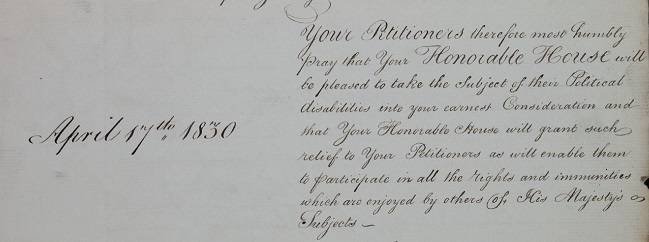 Your Petitioners therefore most humbly
pray that Your Honorable House will
be pleased to take the Subject of their Political
disabilities into your earnest Consideration and
April 17th, 1830
that Your Honorable House will grant such
relief to Your Petitioners as will enable them
to participate in all the rights and immunities
which are enjoyed by others of His Majesty's
Subjects —